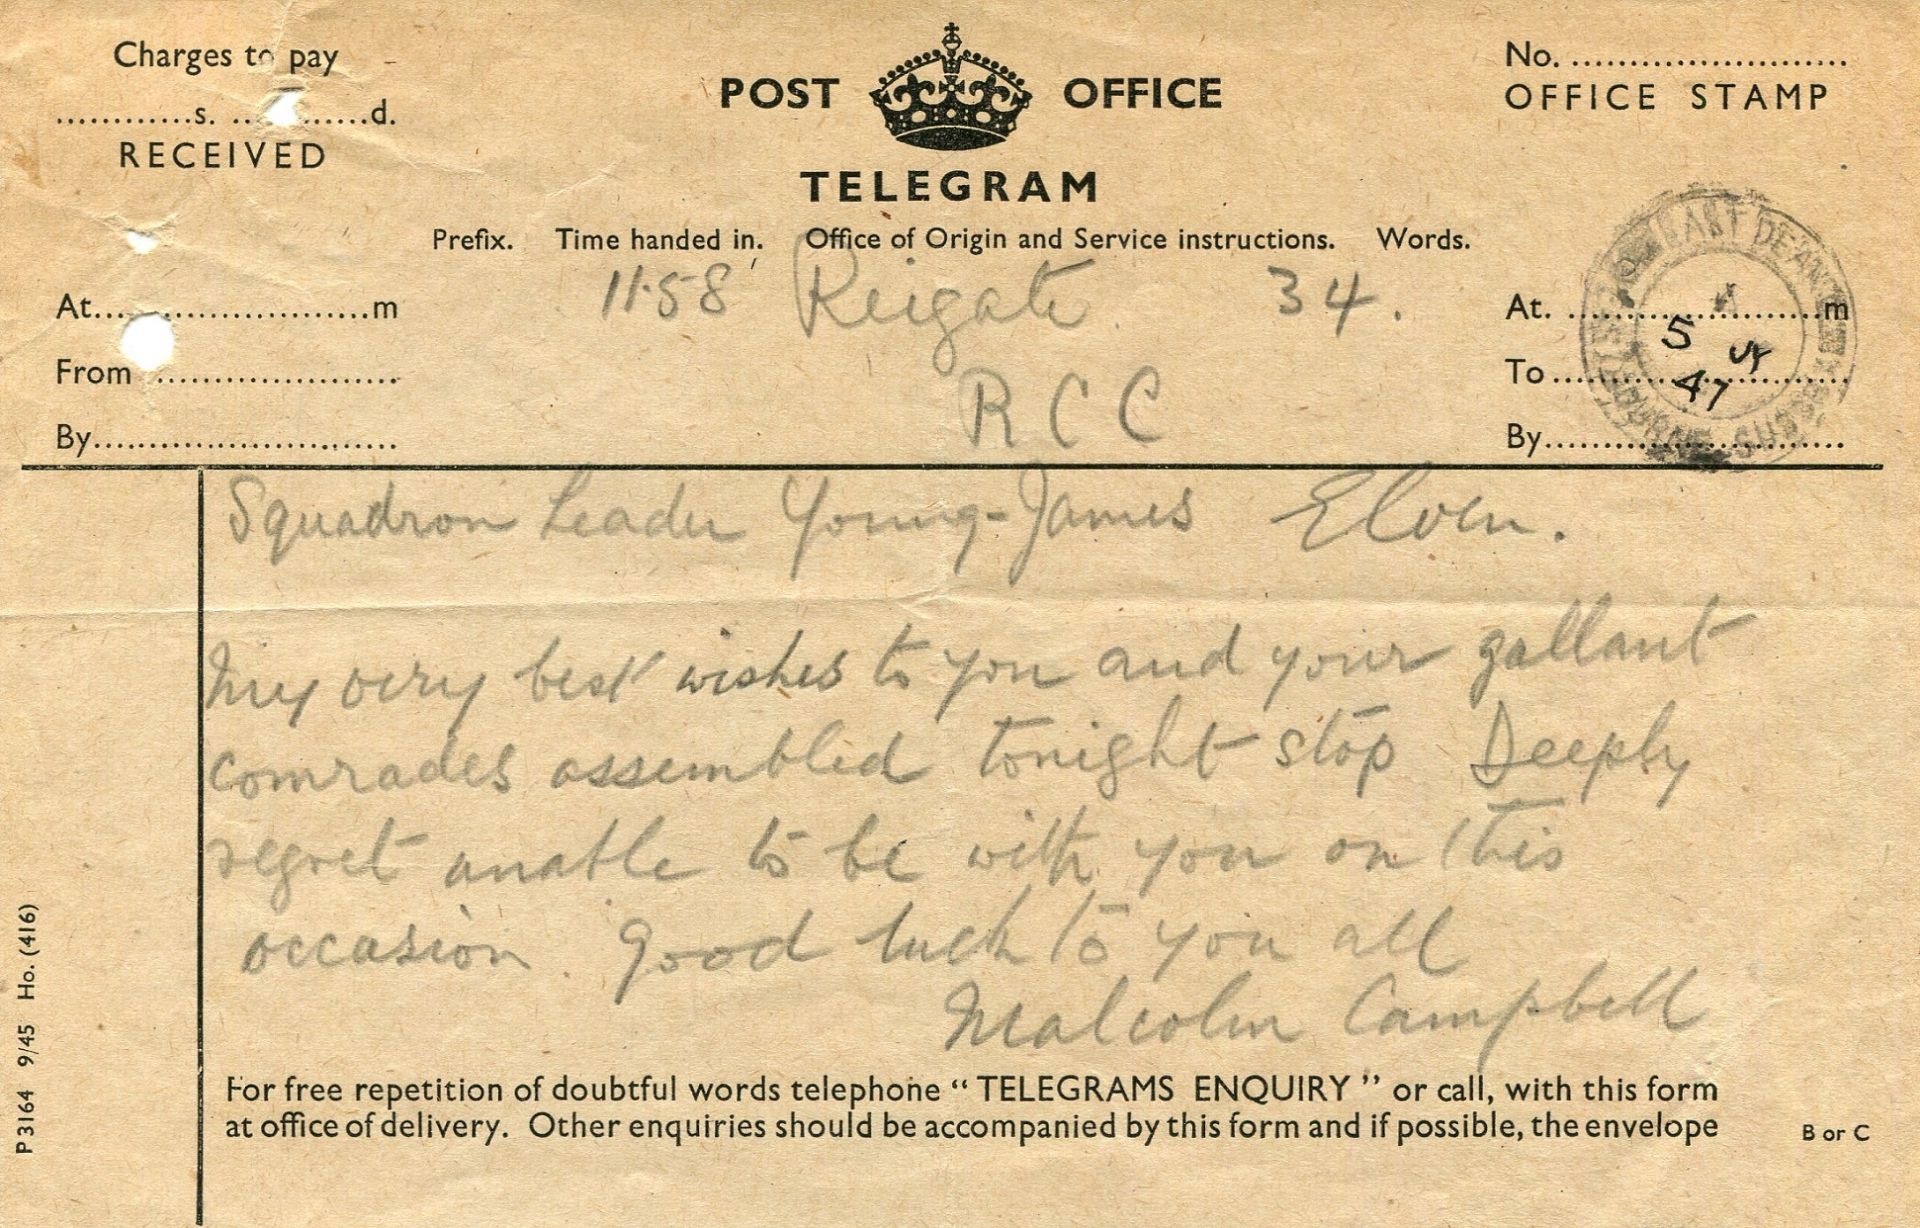 Charges to pay
............s. ............d.
RECEIVED
POST OFFICE
TELEGRAM
No. ........................
OFFICE STAMP
Prefix. Time handed in. Office of Origin and Service instructions. Words.
11.58 Reigate 34.
R C C
At........................m
From ........................
By........................
At. ........................m
To........................
By........................
EAST DEAN
EASTBOURNE SUSSEX
5
47
Squadron Leader Young-James Elven.
My very best wishes to you and your gallant
comrades assembled tonight stop Deeply
regret unable to be with you on this
occasion. Good luck to you all
Malcolm Campbell
For free repetition of doubtful words telephone “ TELEGRAMS ENQUIRY ” or call, with this form
at office of delivery. Other enquiries should be accompanied by this form and if possible, the envelope
B or C
P3164 9/45 Ho. (416)